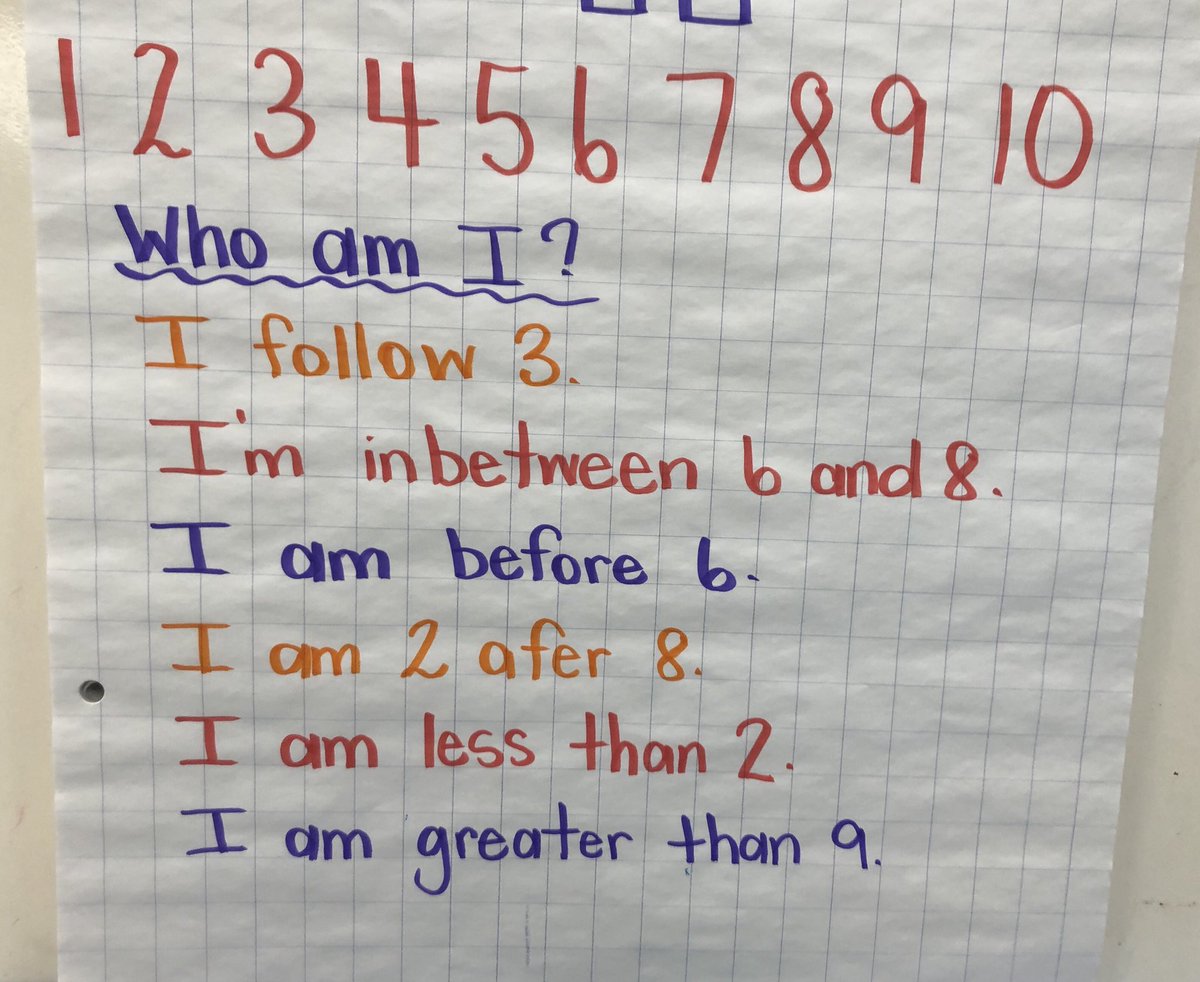 1 2 3 4 5 6 7 8 9 10
Who am I?
I follow 3.
I'm inbetween 6 and 8.
I am before 6.
I am 2 afer 8.
I am less than 2.
I am greater than 9.